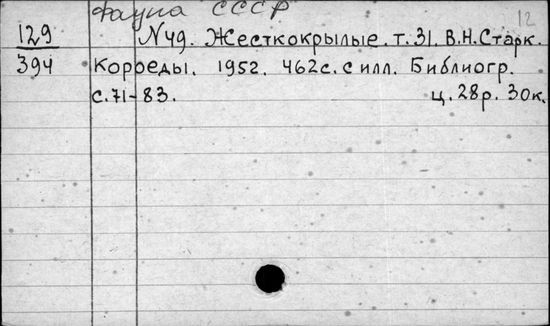 фауна СССР
12
129 N49. Жесткокрылые. т. 31. В.Н. Старк.
394 Короеды. 1952. 462с. с илл. Библиогр.
с. 71-83. ц. 28р. 30к.